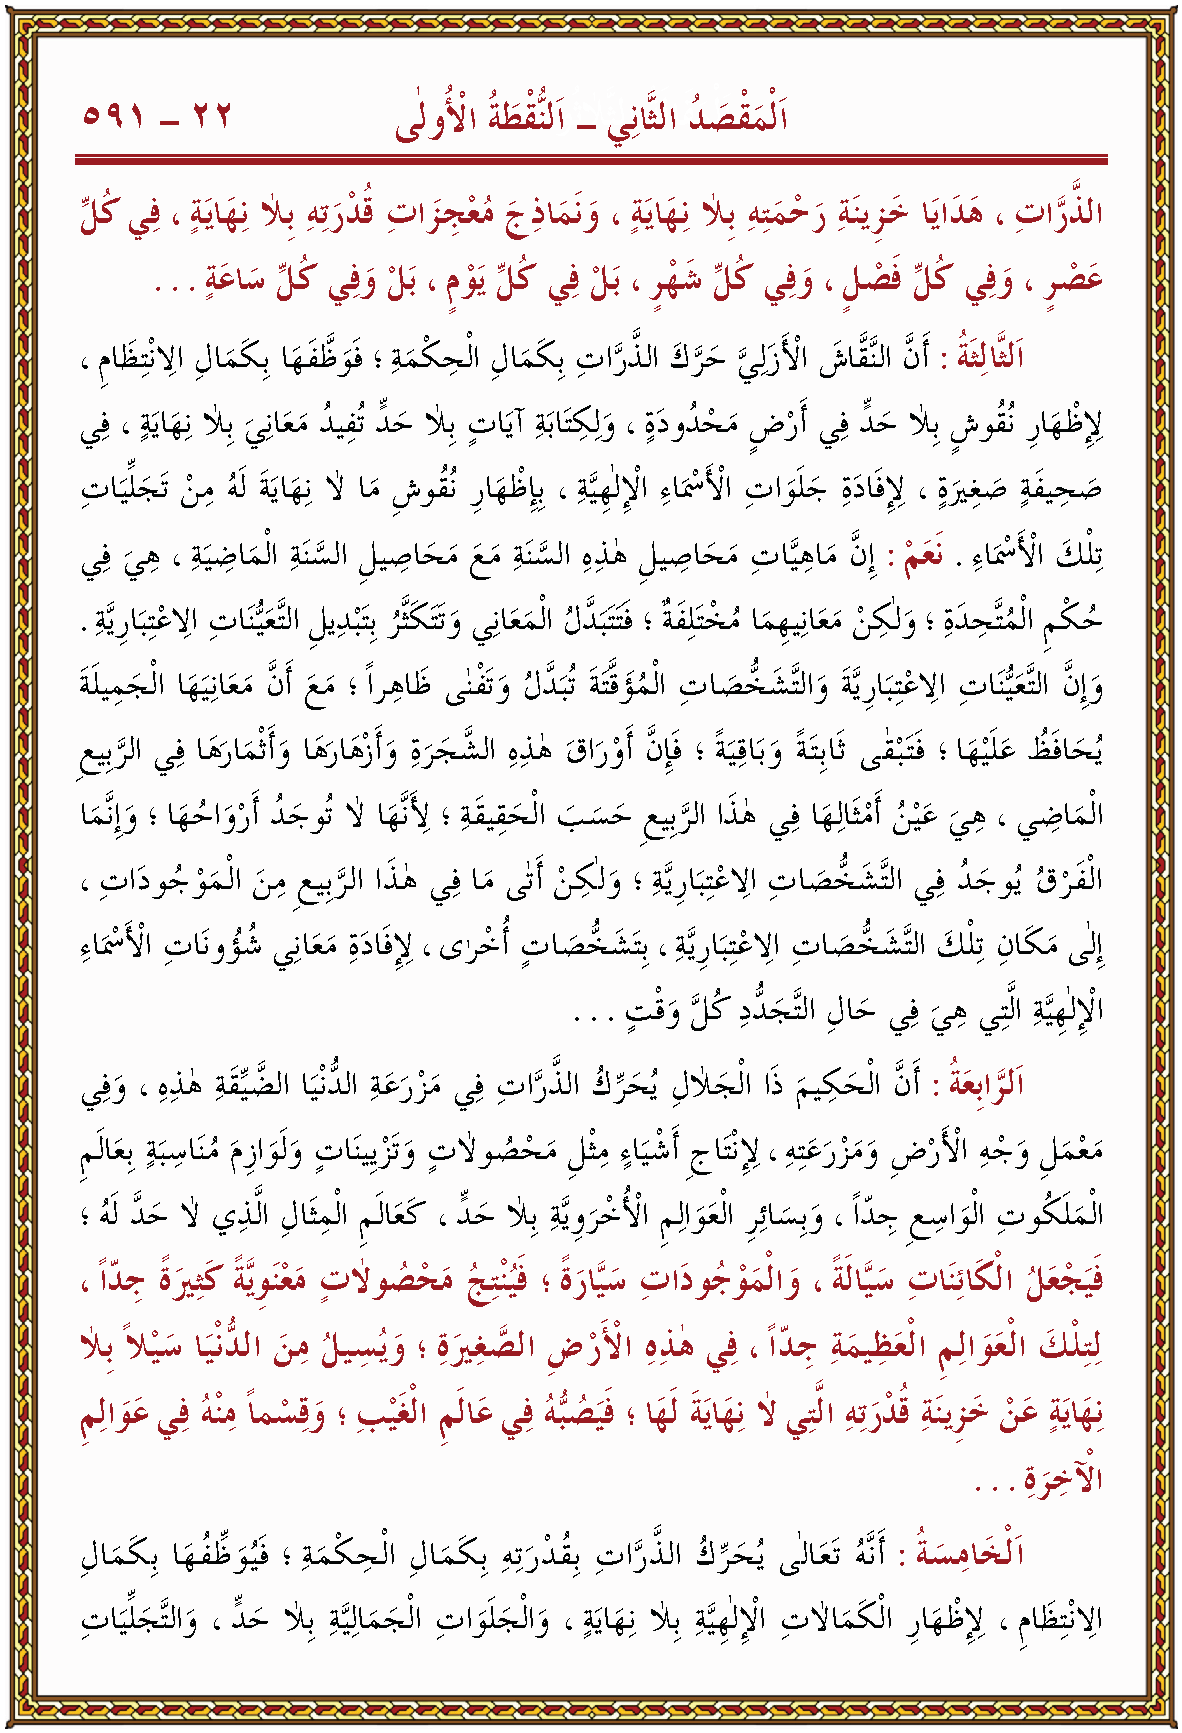 اَلْمَقْصَدُ الثَّانِي – اَلنُّقْطَةُ الْأُولٰى ٢٢ – ٥٩١
الذَّرَّاتِ ، هَدَايَا خَزِينَةِ رَحْمَتِهِ بِلَا نِهَايَةٍ ، وَنَمَاذِجَ مُعْجِزَاتِ قُدْرَتِهِ بِلَا نِهَايَةٍ ، فِي كُلِّ
عَصْرٍ ، وَفِي كُلِّ فَصْلٍ ، وَفِي كُلِّ شَهْرٍ ، بَلْ فِي كُلِّ يَوْمٍ ، بَلْ وَفِي كُلِّ سَاعَةٍ . . .
اَلثَّالِثَةُ : أَنَّ النَّقَّاشَ الْأَزَلِيَّ حَرَّكَ الذَّرَّاتِ بِكَمَالِ الْحِكْمَةِ ؛ فَوَظَّفَهَا بِكَمَالِ الِانْتِظَامِ ،
لِإِظْهَارِ نُقُوشٍ بِلَا حَدٍّ فِي أَرْضٍ مَحْدُودَةٍ ، وَلِكِتَابَةِ آيَاتٍ بِلَا حَدٍّ تُفِيدُ مَعَانِيَ بِلَا نِهَايَةٍ ، فِي
صَحِيفَةٍ صَغِيرَةٍ ، لِإِفَادَةِ جَلَوَاتِ الْأَسْمَاءِ الْإِلٰهِيَّةِ ، بِإِظْهَارِ نُقُوشِ مَا لَا نِهَايَةَ لَهُ مِنْ تَجَلِّيَاتِ
تِلْكَ الْأَسْمَاءِ . نَعَمْ : إِنَّ مَاهِيَّاتِ مَحَاصِيلِ هٰذِهِ السَّنَةِ مَعَ مَحَاصِيلِ السَّنَةِ الْمَاضِيَةِ ، هِيَ فِي
حُكْمِ الْمُتَّحِدَةِ ؛ وَلٰكِنْ مَعَانِيهِمَا مُخْتَلِفَةٌ ؛ فَتَتَبَدَّلُ الْمَعَانِي وَتَتَكَثَّرُ بِتَبْدِيلِ التَّعَيُّنَاتِ الِاعْتِبَارِيَّةِ .
وَإِنَّ التَّعَيُّنَاتِ الِاعْتِبَارِيَّةَ وَالتَّشَخُّصَاتِ الْمُؤَقَّتَةَ تُبَدَّلُ وَتَفْنٰى ظَاهِراً ؛ مَعَ أَنَّ مَعَانِيَهَا الْجَمِيلَةَ
يُحَافَظُ عَلَيْهَا ؛ فَتَبْقٰى ثَابِتَةً وَبَاقِيَةً ؛ فَإِنَّ أَوْرَاقَ هٰذِهِ الشَّجَرَةِ وَأَزْهَارَهَا وَأَثْمَارَهَا فِي الرَّبِيعِ
الْمَاضِي ، هِيَ عَيْنُ أَمْثَالِهَا فِي هٰذَا الرَّبِيعِ حَسَبَ الْحَقِيقَةِ ؛ لِأَنَّهَا لَا تُوجَدُ أَرْوَاحُهَا ؛ وَإِنَّمَا
الْفَرْقُ يُوجَدُ فِي التَّشَخُّصَاتِ الِاعْتِبَارِيَّةِ ؛ وَلٰكِنْ أَتٰى مَا فِي هٰذَا الرَّبِيعِ مِنَ الْمَوْجُودَاتِ ،
إِلٰى مَكَانِ تِلْكَ التَّشَخُّصَاتِ الِاعْتِبَارِيَّةِ ، بِتَشَخُّصَاتٍ أُخْرٰى ، لِإِفَادَةِ مَعَانِي شُؤُونَاتِ الْأَسْمَاءِ
الْإِلٰهِيَّةِ الَّتِي هِيَ فِي حَالِ التَّجَدُّدِ كُلَّ وَقْتٍ . . .
اَلرَّابِعَةُ : أَنَّ الْحَكِيمَ ذَا الْجَلَالِ يُحَرِّكُ الذَّرَّاتِ فِي مَزْرَعَةِ الدُّنْيَا الضَّيِّقَةِ هٰذِهِ ، وَفِي
مَعْمَلِ وَجْهِ الْأَرْضِ وَمَزْرَعَتِهِ ، لِإِنْتَاجِ أَشْيَاءٍ مِثْلِ مَحْصُولَاتٍ وَتَزْيِينَاتٍ وَلَوَازِمَ مُنَاسِبَةٍ بِعَالَمِ
الْمَلَكُوتِ الْوَاسِعِ جِدّاً ، وَبِسَائِرِ الْعَوَالِمِ الْأُخْرَوِيَّةِ بِلَا حَدٍّ ، كَعَالَمِ الْمِثَالِ الَّذِي لَا حَدَّ لَهُ ؛
فَيَجْعَلُ الْكَائِنَاتِ سَيَّالَةً ، وَالْمَوْجُودَاتِ سَيَّارَةً ؛ فَيُنْتِجُ مَحْصُولَاتٍ مَعْنَوِيَّةً كَثِيرَةً جِدّاً ،
لِتِلْكَ الْعَوَالِمِ الْعَظِيمَةِ جِدّاً ، فِي هٰذِهِ الْأَرْضِ الصَّغِيرَةِ ؛ وَيُسِيلُ مِنَ الدُّنْيَا سَيْلاً بِلَا
نِهَايَةٍ عَنْ خَزِينَةِ قُدْرَتِهِ الَّتِي لَا نِهَايَةَ لَهَا ؛ فَيَصُبُّهُ فِي عَالَمِ الْغَيْبِ ؛ وَقِسْماً مِنْهُ فِي عَوَالِمِ
الْآخِرَةِ . . .
اَلْخَامِسَةُ : أَنَّهُ تَعَالٰى يُحَرِّكُ الذَّرَّاتِ بِقُدْرَتِهِ بِكَمَالِ الْحِكْمَةِ ؛ فَيُوَظِّفُهَا بِكَمَالِ
الِانْتِظَامِ ، لِإِظْهَارِ الْكَمَالَاتِ الْإِلٰهِيَّةِ بِلَا نِهَايَةٍ ، وَالْجَلَوَاتِ الْجَمَالِيَّةِ بِلَا حَدٍّ ، وَالتَّجَلِّيَاتِ